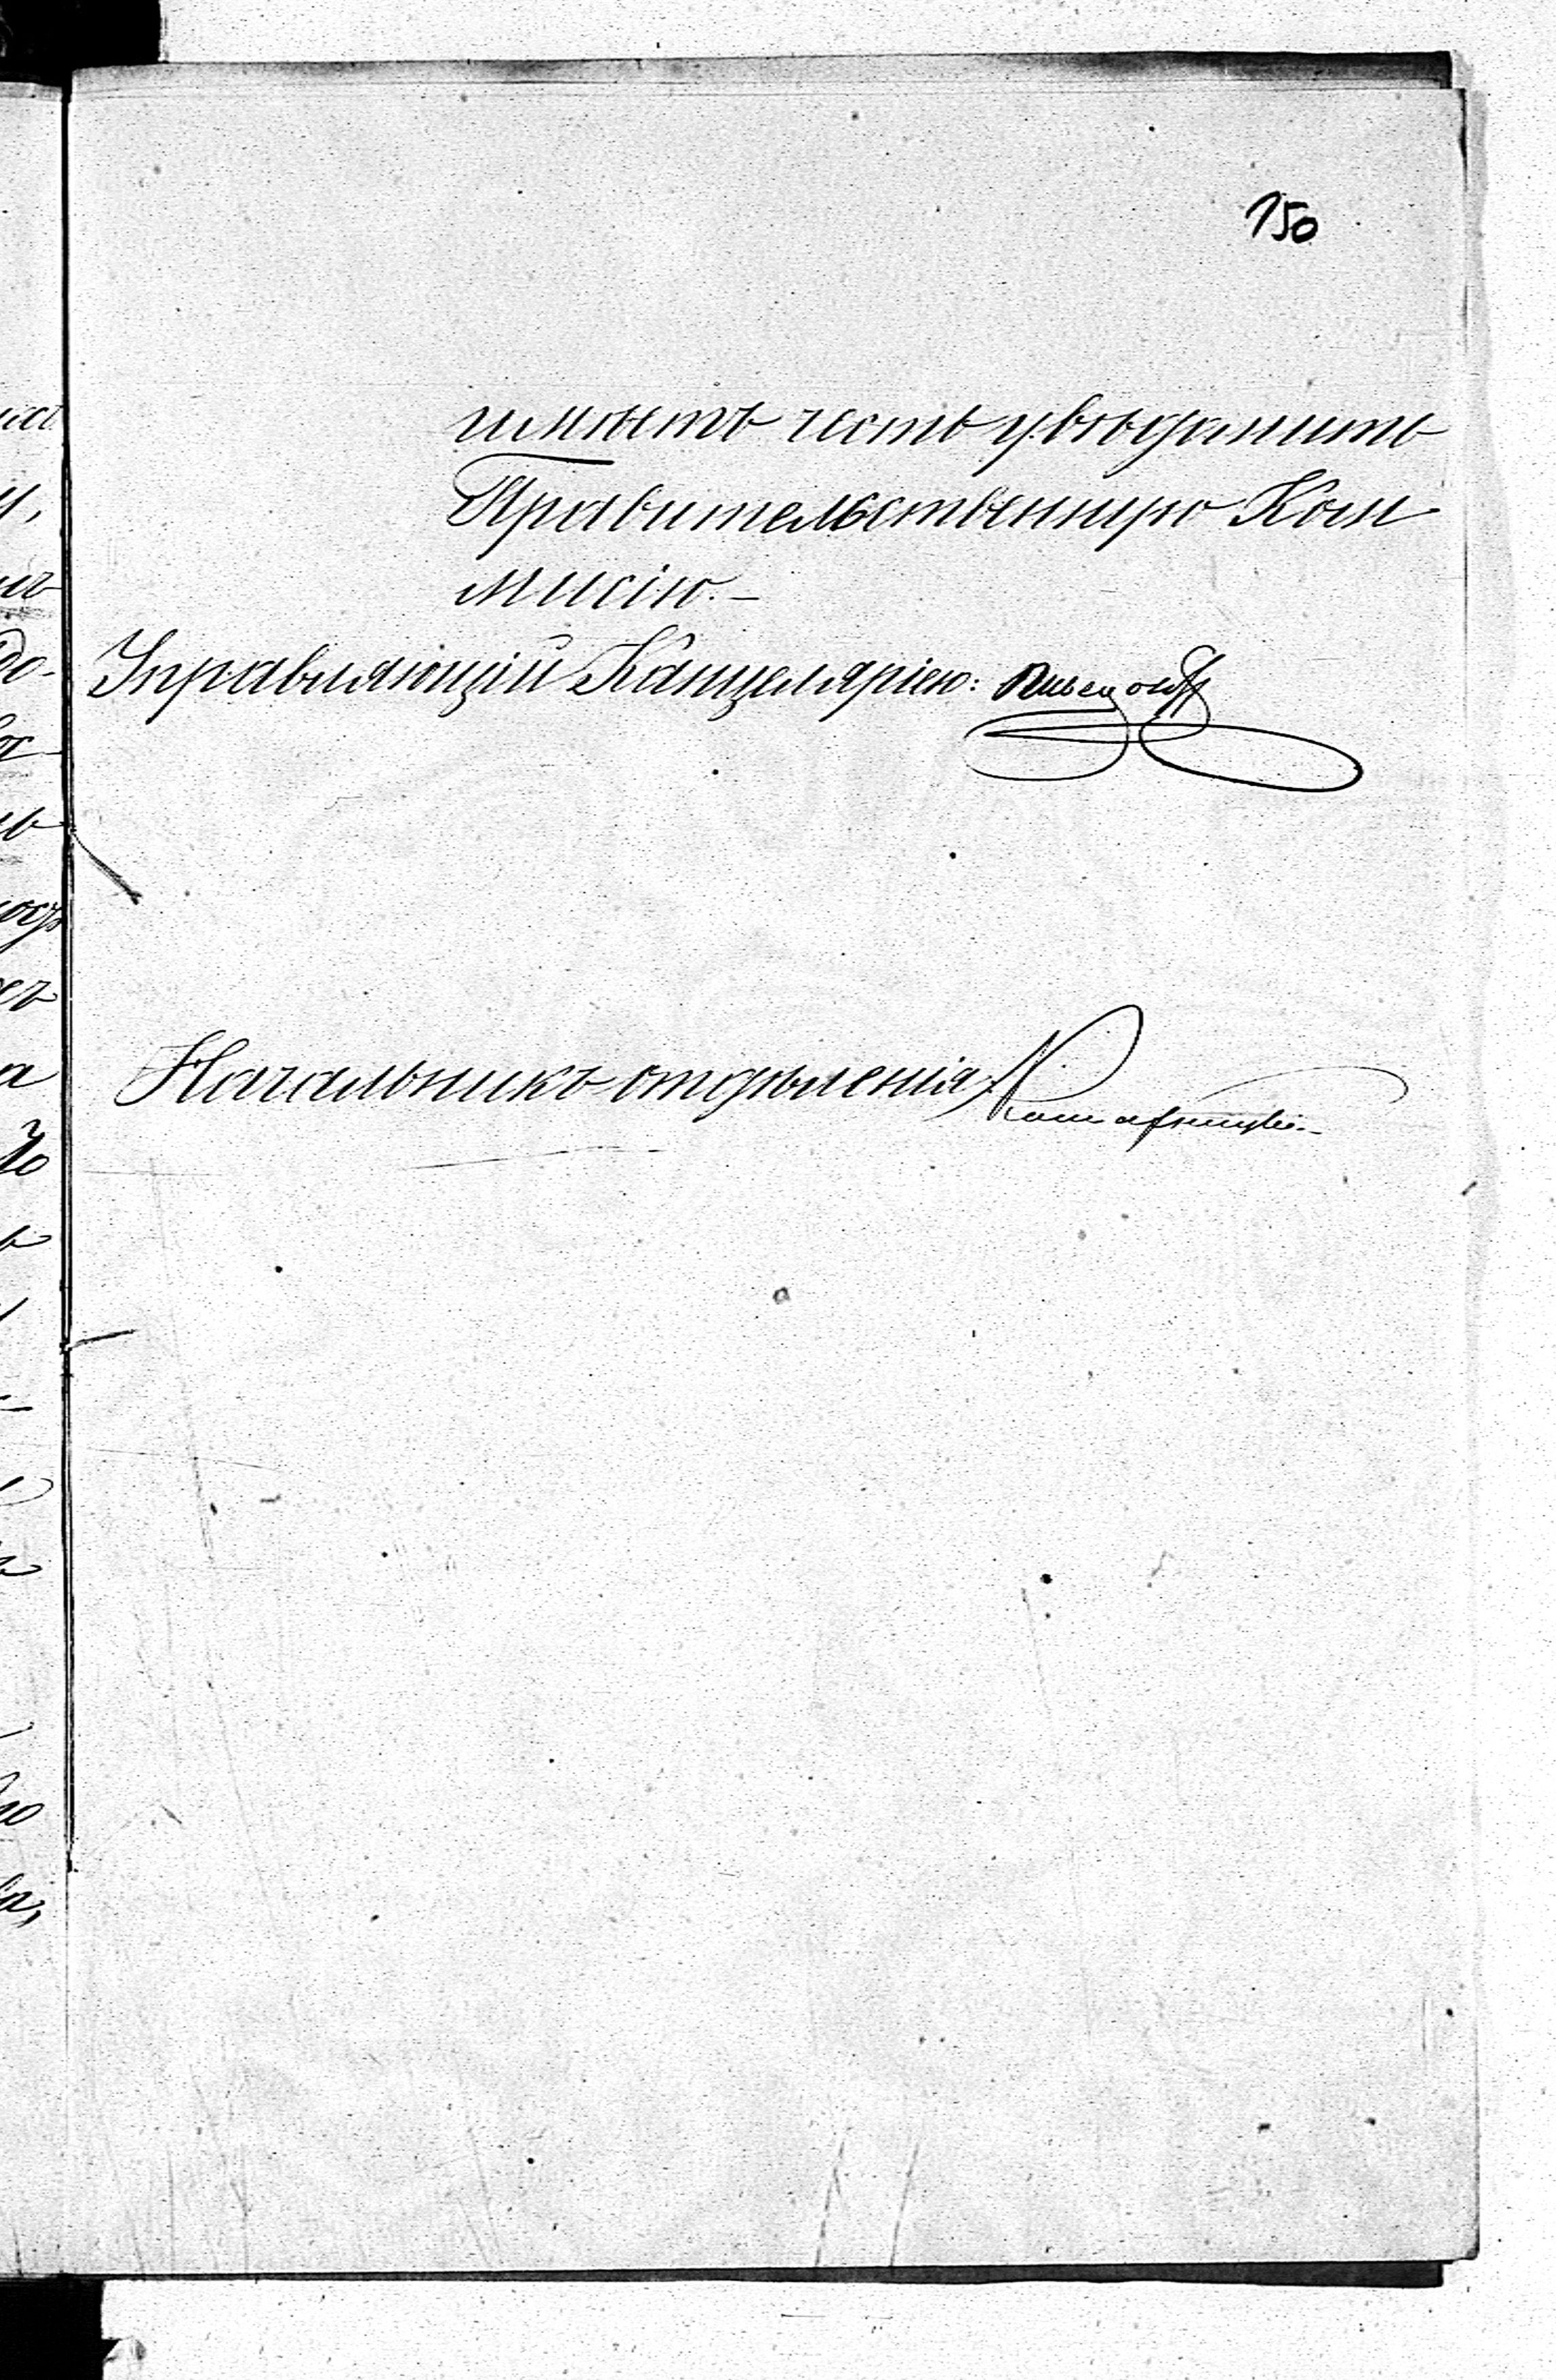 150
имѣетъ честь увѣдомить
Правительственную Ком
мисію.–
Управляющій Канцеляріею:
Начальникъ отдѣленія: